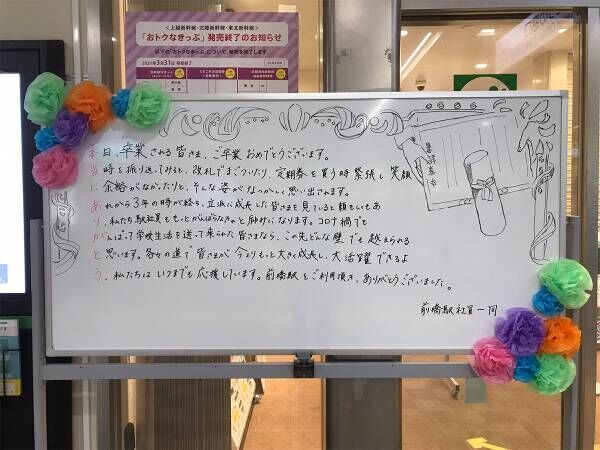 <上越新幹線・北陸新幹線・東北新幹線>
「おトクなきっぷ」発売終了のお知らせ
以下の「おトクなきっぷ」について、発売を終了します。
2021年3月31日 発売終了
本日、卒業される皆さま、ご卒業おめでとうございます。
当時を振り返ってみると、改札でまごついたり、定期券を買う時緊張し笑顔
に余裕がなかったりと、そんな姿がなつかしく思い出されます。
あれから3年の時が経ち、立派に成長した皆さまを見ていると頼もしくもあ
り、私たち駅社員ももっとがんばらなきゃと励みになります。コロナ禍でも
がんばって学校生活を送って来られた皆さまなら、この先どんな壁でも越えられる
と思います。各々の道で皆さまが今よりもっと大きく成長し、大活躍できるよ
う、私たちはいつまでも応援しています。前橋駅をご利用頂き、ありがとうございました。
前橋駅社員一同
卒業証書